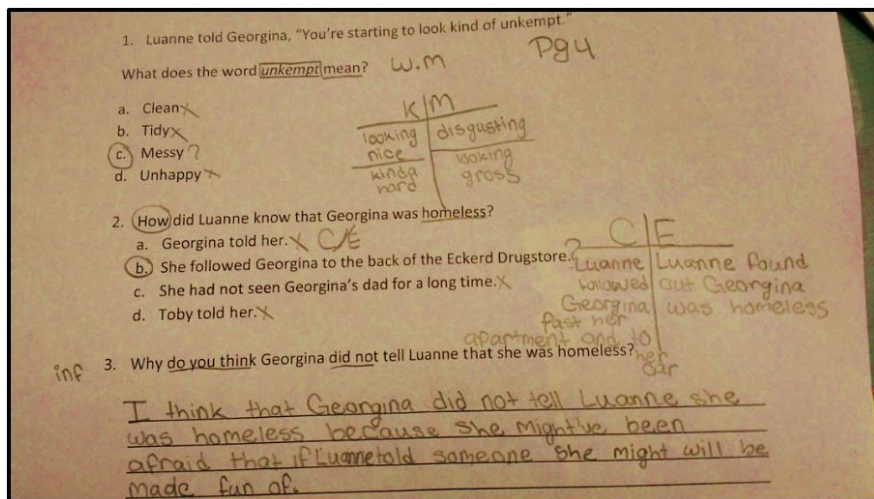 1. Luanne told Georgina, "You're starting to look kind of unkempt."
Pg 4
What does the word unkempt mean? W.M
a. Clean X
b. Tidy X
c. Messy ?
d. Unhappy X
K | M
looking nice | disgusting
kinda hard | looking gross
2. How did Luanne know that Georgina was homeless?
a. Georgina told her. X C/E
b. She followed Georgina to the back of the Eckerd Drugstore. ?
c. She had not seen Georgina's dad for a long time. X
d. Toby told her. X
C | E
Luanne | Luanne found
followed | out Georgina
Georgina | was homeless
past her
apartment and to
her
car
inf 3. Why do you think Georgina did not tell Luanne that she was homeless?
I think that Georgina did not tell Luanne she
was homeless because she might've been
afraid that if Luanne told someone she might will be
made fun of.